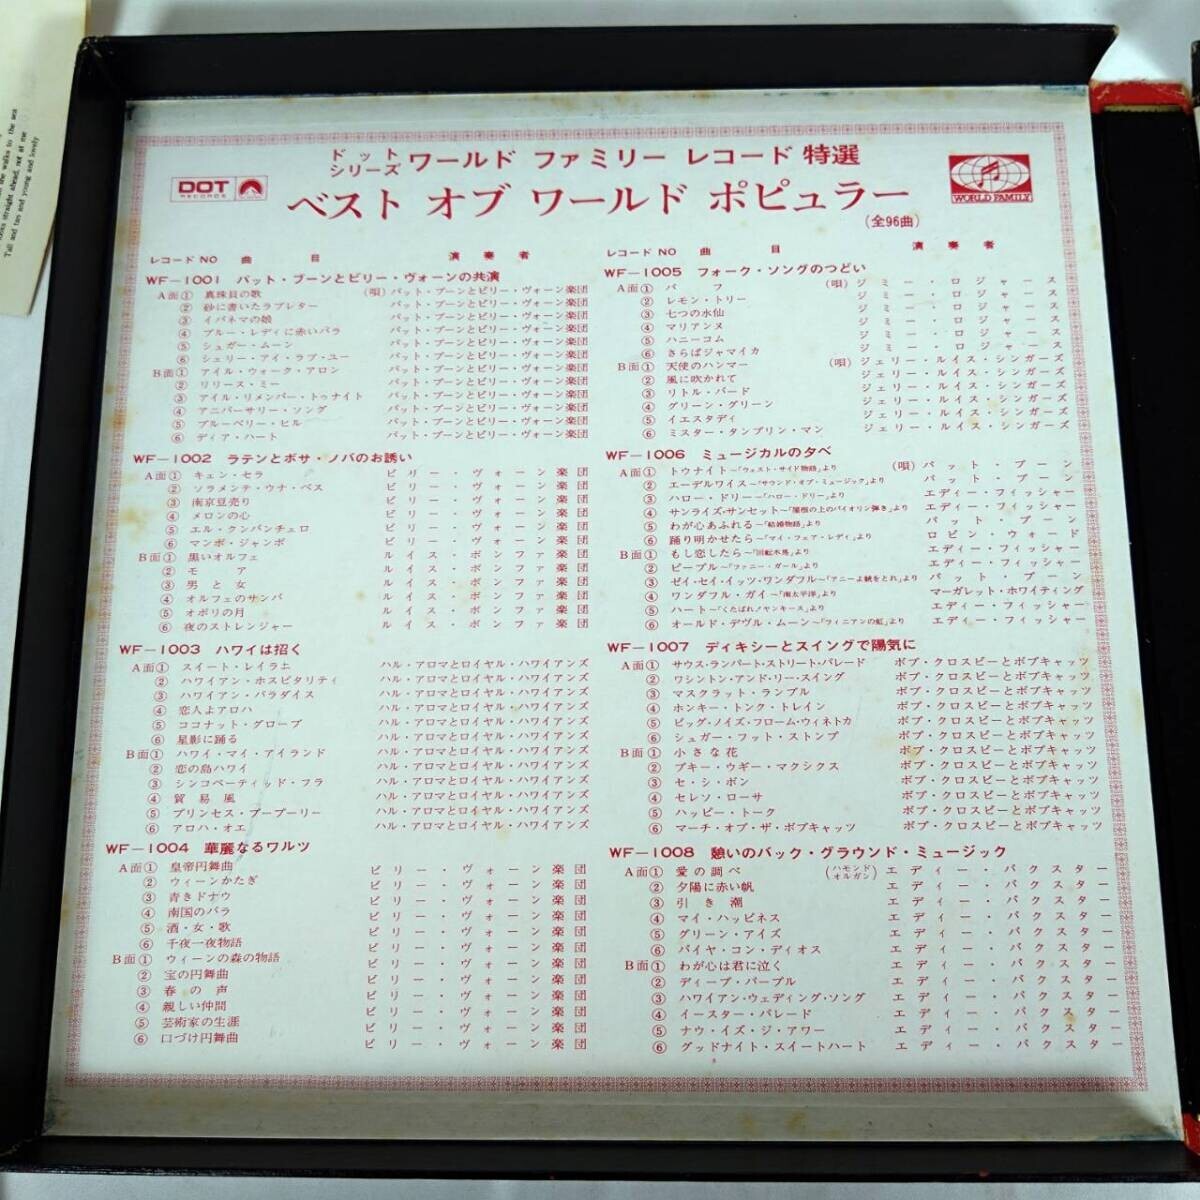 the walks to the sea
looks straight ahead, not at me
Tall and tan and young and lovely
ドット
シリーズ ワールド ファミリー レコード 特選
DOT
RECORDS
ベスト オブ ワールド ポピュラー
(全96曲)
WORLD FAMILY
レコード NO 曲目 演奏者
WF-1001 パット・ブーンとビリー・ヴォーンの共演
A面① 真珠貝の歌 (唄)パット・ブーンとビリー・ヴォーン楽団
② 砂に書いたラブレター パット・ブーンとビリー・ヴォーン楽団
③ イパネマの娘 パット・ブーンとビリー・ヴォーン楽団
④ ブルー・レディに赤いバラ パット・ブーンとビリー・ヴォーン楽団
⑤ シュガー・ムーン パット・ブーンとビリー・ヴォーン楽団
⑥ シェリー・アイ・ラブ・ユー パット・ブーンとビリー・ヴォーン楽団
B面① アイル・ウォーク・アロン パット・ブーンとビリー・ヴォーン楽団
② リリース・ミー パット・ブーンとビリー・ヴォーン楽団
③ アイル・リメンバー・トゥナイト パット・ブーンとビリー・ヴォーン楽団
④ アニバーサリー・ソング パット・ブーンとビリー・ヴォーン楽団
⑤ ブルーベリー・ヒル パット・ブーンとビリー・ヴォーン楽団
⑥ ディア・ハート パット・ブーンとビリー・ヴォーン楽団
WF-1002 ラテンとボサ・ノバのお誘い
A面① キェン・セラ ビリー・ヴォーン楽団
② ソラメンテ・ウナ・ベス ビリー・ヴォーン楽団
③ 南京豆売り ビリー・ヴォーン楽団
④ メロンの心 ビリー・ヴォーン楽団
⑤ エル・クンバンチェロ ビリー・ヴォーン楽団
⑥ マンボ・ジャンボ ビリー・ヴォーン楽団
B面① 黒いオルフェ ルイス・ボンファ楽団
② モア ルイス・ボンファ楽団
③ 男と女 ルイス・ボンファ楽団
④ オルフェのサンバ ルイス・ボンファ楽団
⑤ オボリの月 ルイス・ボンファ楽団
⑥ 夜のストレンジャー ルイス・ボンファ楽団
WF-1003 ハワイは招く
A面① スイート・レイラニ ハル・アロマとロイヤル・ハワイアンズ
② ハワイアン・ホスピタリティ ハル・アロマとロイヤル・ハワイアンズ
③ ハワイアン・パラダイス ハル・アロマとロイヤル・ハワイアンズ
④ 恋人よアロハ ハル・アロマとロイヤル・ハワイアンズ
⑤ ココナット・グローブ ハル・アロマとロイヤル・ハワイアンズ
⑥ 星影に踊る ハル・アロマとロイヤル・ハワイアンズ
B面① ハワイ・マイ・アイランド ハル・アロマとロイヤル・ハワイアンズ
② 恋の島ハワイ ハル・アロマとロイヤル・ハワイアンズ
③ シンコペーティッド・フラ ハル・アロマとロイヤル・ハワイアンズ
④ 貿易風 ハル・アロマとロイヤル・ハワイアンズ
⑤ プリンセス・プープーリー ハル・アロマとロイヤル・ハワイアンズ
⑥ アロハ・オエ ハル・アロマとロイヤル・ハワイアンズ
WF-1004 華麗なるワルツ
A面① 皇帝円舞曲 ビリー・ヴォーン楽団
② ウィーンかたぎ ビリー・ヴォーン楽団
③ 青きドナウ ビリー・ヴォーン楽団
④ 南国のバラ ビリー・ヴォーン楽団
⑤ 酒・女・歌 ビリー・ヴォーン楽団
⑥ 千夜一夜物語 ビリー・ヴォーン楽団
B面① ウィーンの森の物語 ビリー・ヴォーン楽団
② 宝の円舞曲 ビリー・ヴォーン楽団
③ 春の声 ビリー・ヴォーン楽団
④ 親しい仲間 ビリー・ヴォーン楽団
⑤ 芸術家の生涯 ビリー・ヴォーン楽団
⑥ 口づけ円舞曲 ビリー・ヴォーン楽団
レコード NO 曲目 演奏者
WF-1005 フォーク・ソングのつどい
A面① パフ (唄)ジミー・ロジャース
② レモン・トリー ジミー・ロジャース
③ 七つの水仙 ジミー・ロジャース
④ マリアンヌ ジミー・ロジャース
⑤ ハニーコム ジミー・ロジャース
⑥ さらばジャマイカ ジミー・ロジャース
B面① 天使のハンマー (唄)ジェリー・ルイス・シンガーズ
② 風に吹かれて ジェリー・ルイス・シンガーズ
③ リトル・バード ジェリー・ルイス・シンガーズ
④ グリーン・グリーン ジェリー・ルイス・シンガーズ
⑤ イエスタディ ジェリー・ルイス・シンガーズ
⑥ ミスター・タンブリン・マン ジェリー・ルイス・シンガーズ
WF-1006 ミュージカルの夕べ
A面① トゥナイト〜「ウェスト・サイド物語」より (唄)パット・ブーン
② エーデルワイス〜「サウンド・オブ・ミュージック」より パット・ブーン
③ ハロー・ドリー〜「ハロー・ドリー」より エディー・フィッシャー
④ サンライズ・サンセット〜「屋根の上のバイオリン弾き」より エディー・フィッシャー
⑤ わが心あふれる〜「結婚物語」より パット・ブーン
⑥ 踊り明かせたら〜「マイ・フェア・レディ」より ロビン・ウォード
B面① もし恋したら〜「回転木馬」より エディー・フィッシャー
② ピープル〜「ファニー・ガール」より エディー・フィッシャー
③ ゼイ・セイ・イッツ・ワンダフル〜「アニーよ銃をとれ」より パット・ブーン
④ ワンダフル・ガイ〜「南太平洋」より マーガレット・ホワイティング
⑤ ハート〜「くたばれ!ヤンキース」より エディー・フィッシャー
⑥ オールド・デヴル・ムーン〜「フィニアンの虹」より エディー・フィッシャー
WF-1007 ディキシーとスイングで陽気に
A面① サウス・ランパート・ストリート・パレード ボブ・クロスビーとボブキャッツ
② ワシントン・アンド・リー・スイング ボブ・クロスビーとボブキャッツ
③ マスクラット・ランブル ボブ・クロスビーとボブキャッツ
④ ホンキー・トンク・トレイン ボブ・クロスビーとボブキャッツ
⑤ ビッグ・ノイズ・フローム・ウィネトカ ボブ・クロスビーとボブキャッツ
⑥ シュガー・フット・ストンプ ボブ・クロスビーとボブキャッツ
B面① 小さな花 ボブ・クロスビーとボブキャッツ
② ブキー・ウギー・マクシクス ボブ・クロスビーとボブキャッツ
③ セ・シ・ボン ボブ・クロスビーとボブキャッツ
④ セレソ・ローサ ボブ・クロスビーとボブキャッツ
⑤ ハッピー・トーク ボブ・クロスビーとボブキャッツ
⑥ マーチ・オブ・ザ・ボブキャッツ ボブ・クロスビーとボブキャッツ
WF-1008 憩いのバック・グラウンド・ミュージック
A面① 愛の調べ (ハモンドオルガン) エディー・バクスター
② 夕陽に赤い帆 エディー・バクスター
③ 引き潮 エディー・バクスター
④ マイ・ハッピネス エディー・バクスター
⑤ グリーン・アイズ エディー・バクスター
⑥ バイヤ・コン・ディオス エディー・バクスター
B面① わが心は君に泣く エディー・バクスター
② ディープ・パープル エディー・バクスター
③ ハワイアン・ウェディング・ソング エディー・バクスター
④ イースター・パレード エディー・バクスター
⑤ ナウ・イズ・ジ・アワー エディー・バクスター
⑥ グッドナイト・スイートハート エディー・バクスター